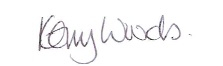 Kerry Woods.